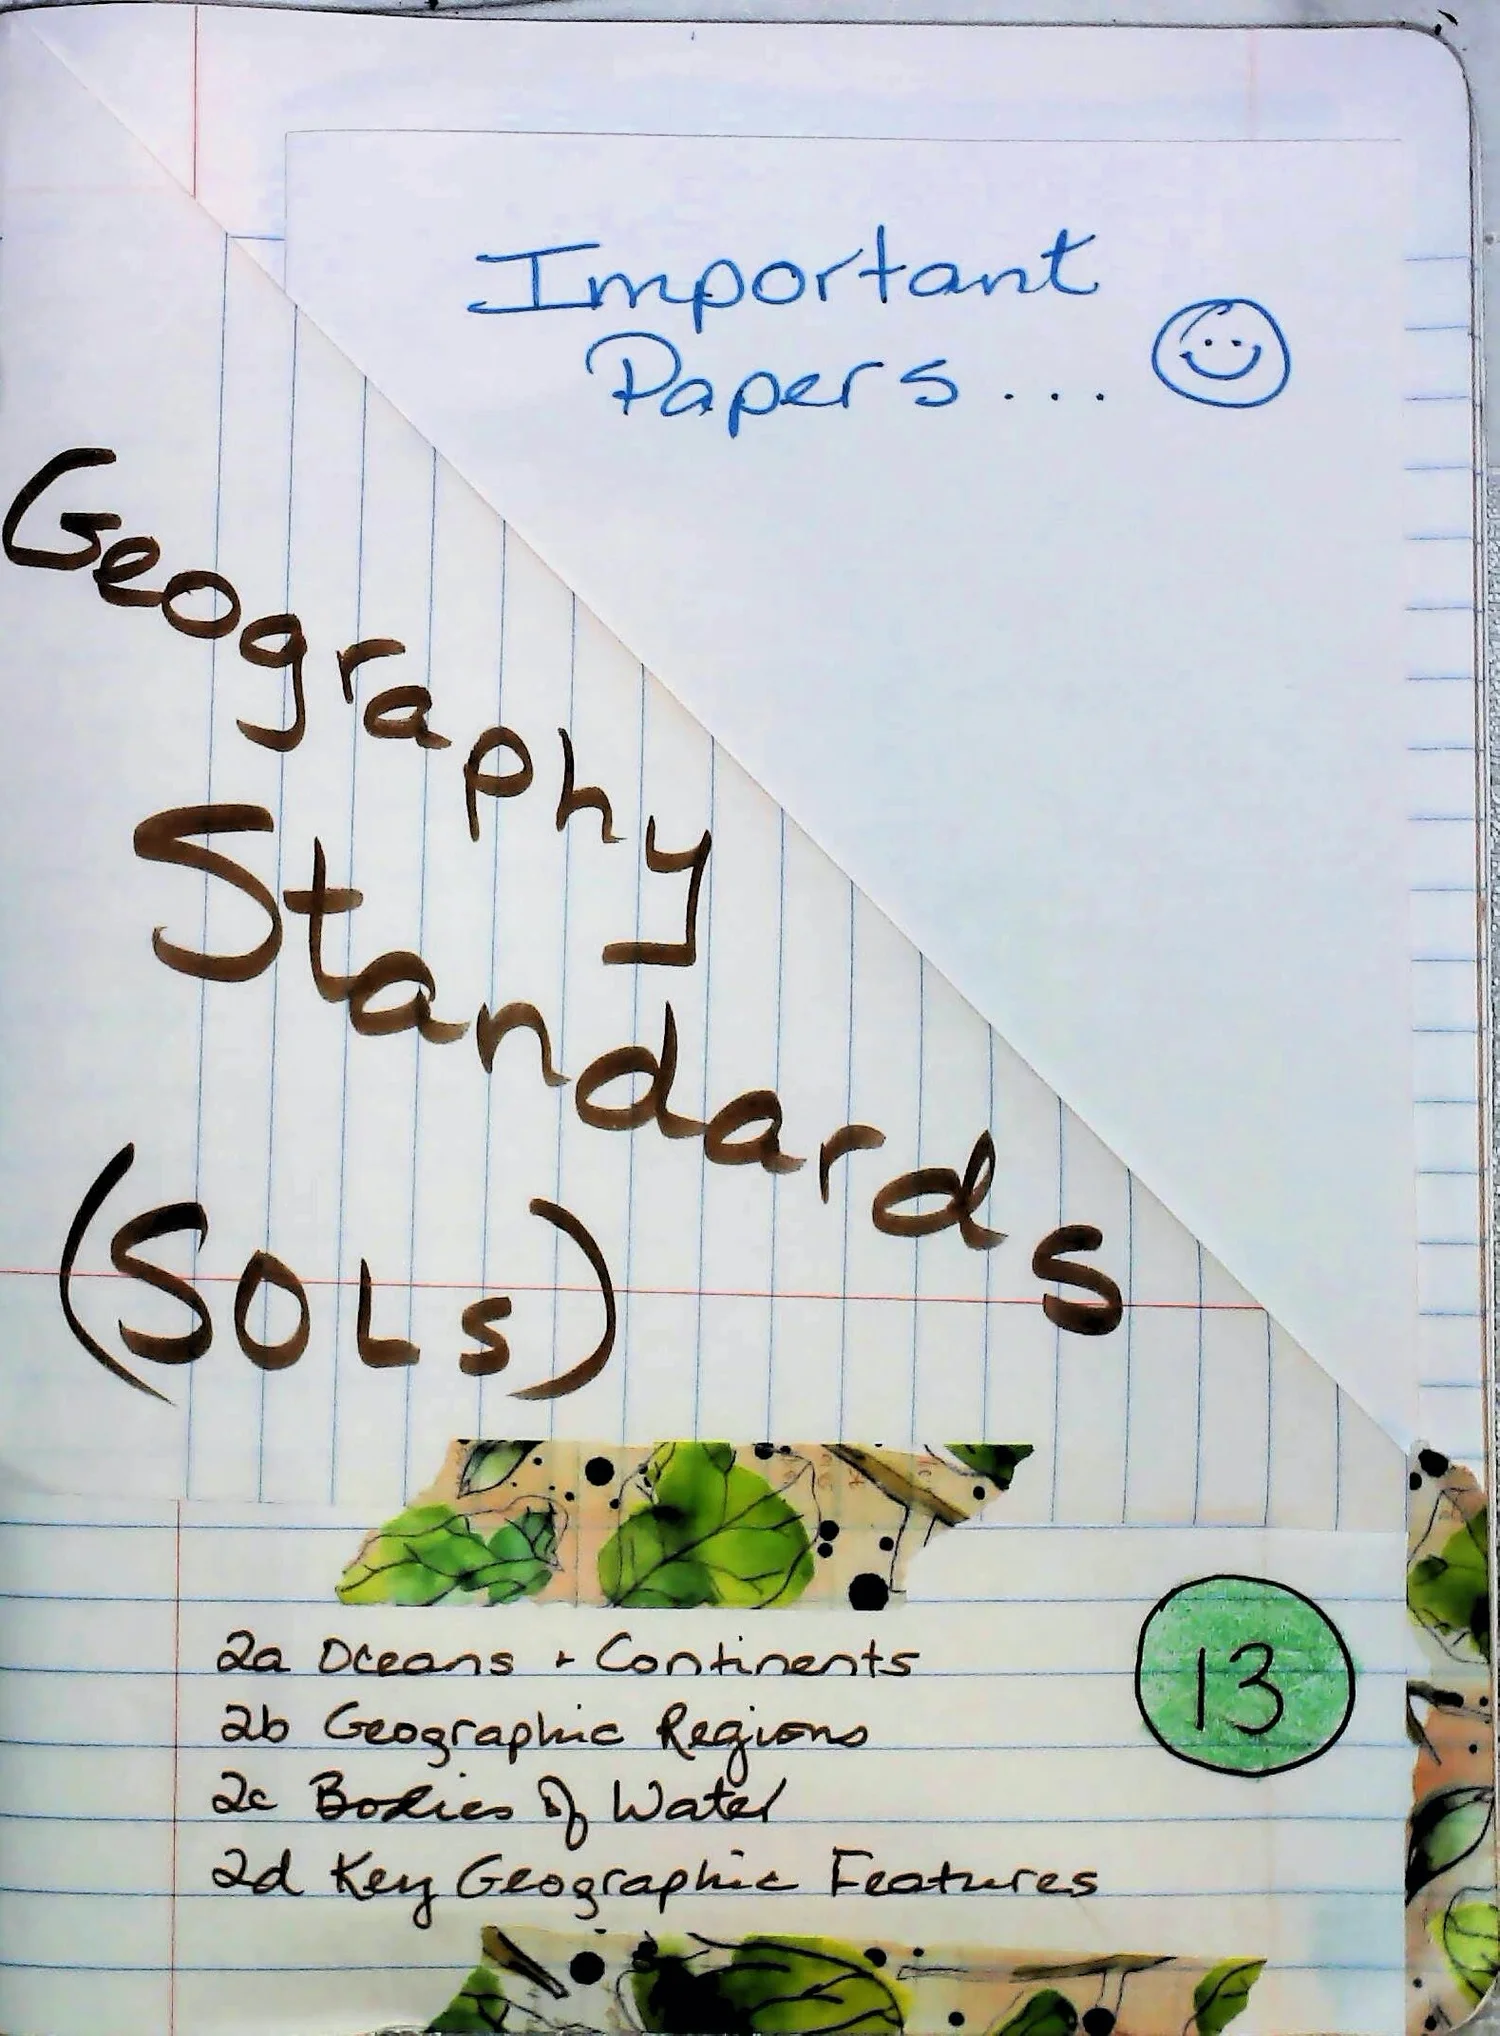 Important
Papers....
Geography
Standards
(SOLs)
2a Oceans + Continents
2b Geographic Regions
2c Bodies of Water
2d Key Geographic Features
13